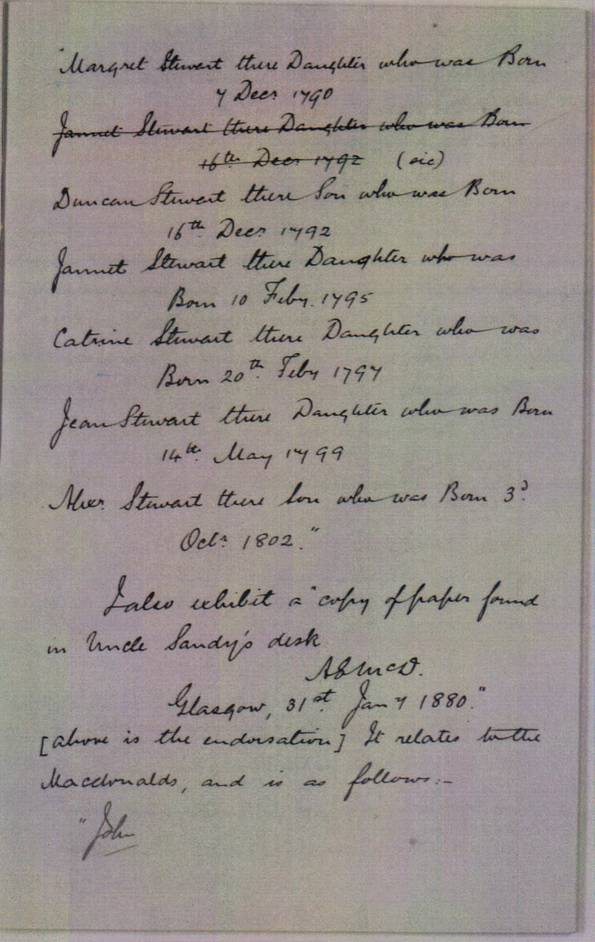 "Margret Stewart there Daughter who was Born
7 Decr 1790
Jannet Stewart there Daughter who was Born
16th Decr 1792 (sic)
Duncan Stewart there Son who was Born
16th Decr 1792
Jannet Stewart there Daughter who was
Born 10 Feby. 1795
Catrine Stewart there Daughter who was
Born 20th Feby 1797
Jean Stewart there Daughter who was Born
14th May 1799
Alexr Stewart there Son who was Born 3d
Octr 1802."
I also exhibit a "copy of paper found
in Uncle Sandy's desk
A E McD.
Glasgow, 31st Jany 1880."
[above is the endorsation] It relates to the
Macdonalds, and is as follows:-
"John